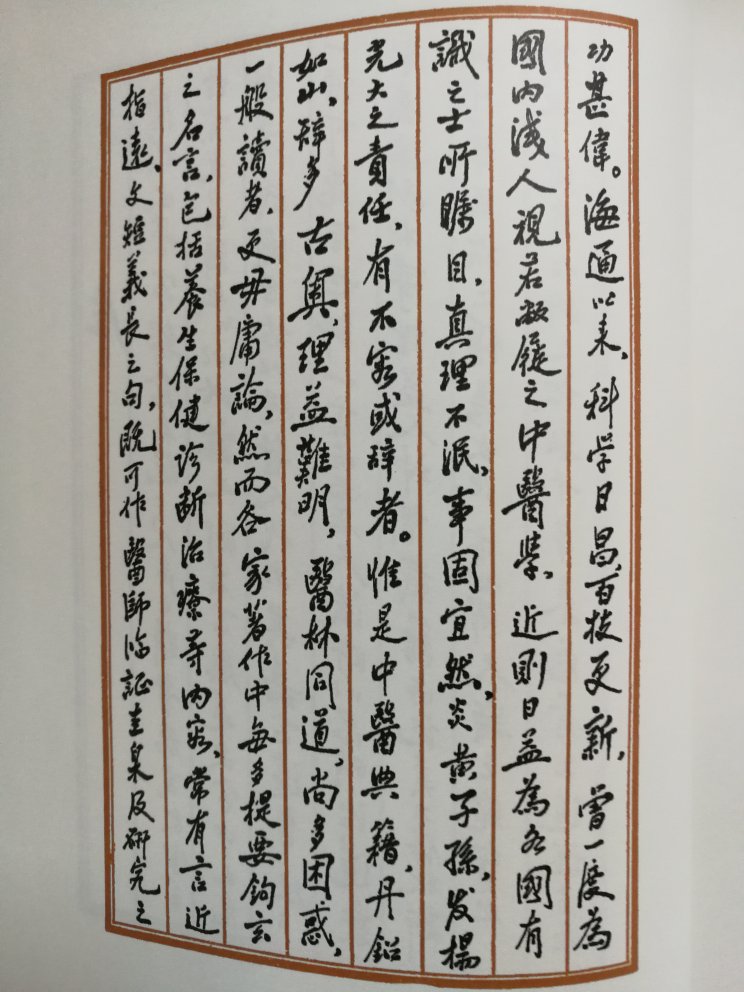 功甚偉。海通以来，科学日昌，百技更新，曾一度為
國内淺人視若敝屣之中醫學，近則日益為各國有
識之士所矚目，真理不泯，事固宜然，炎黄子孫，发揚
光大之責任，有不容或辞者。惟是中醫典籍，丹鉛
如山，辞多古奥，理益難明，醫林同道，尚多困惑，
一般讀者，更毋庸論，然而各家著作中每多提要鉤玄
之名言，包括养生保健诊断治療等内容，常有言近
指遠、文短義長之句，既可作醫師临証圭臬及研究之